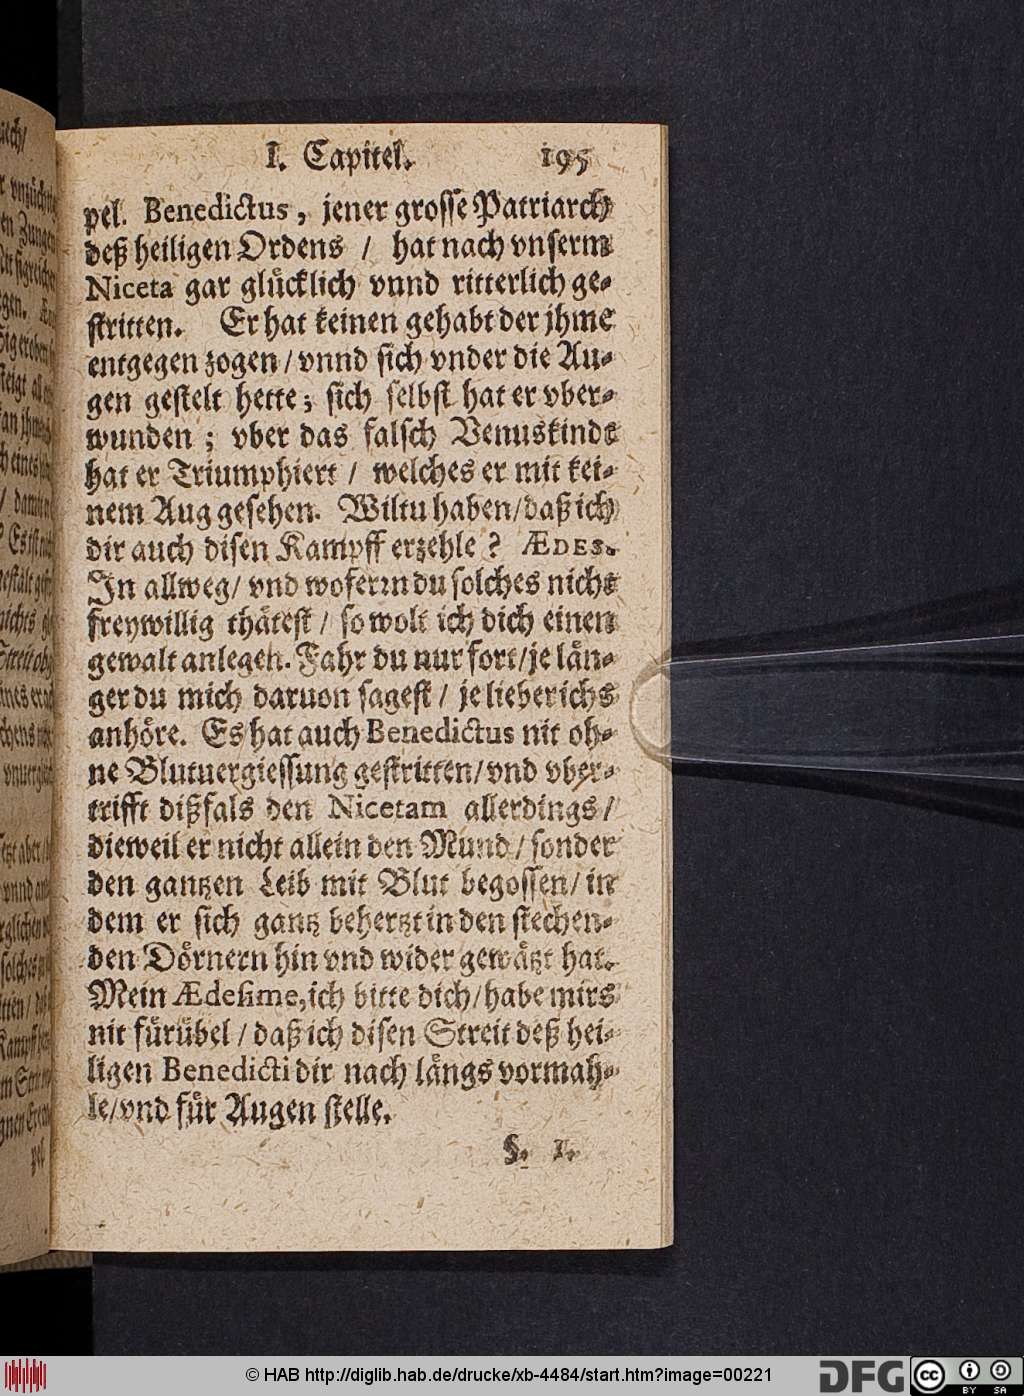 I. Capitel. 195
pel. Benedictus, jener grosse Patriarch
deß heiligen Ordens / hat nach vnserm
Niceta gar glücklich vnnd ritterlich ge-
stritten. Er hat keinen gehabt der jhme
entgegen zogen / vnnd sich vnder die Au-
gen gestelt hette; sich selbst hat er vber-
wunden; vber das falsch Venuskinde
hat er Triumphiert / welches er mit kei-
nem Aug gesehen. Wiltu haben / daß ich
dir auch disen Kampff erzehle? ÆDES.
In allweg / vnd woferrn du solches nicht
freywillig thätest / so wolt ich dich einen
gewalt anlegen. Fahr du nur fort / je län-
ger du mich daruon sagest / je lieber ichs
anhöre. Es hat auch Benedictus nit oh-
ne Blutuergiessung gestritten / vnd vber-
trifft dißfals den Nicetam allerdings /
dieweil er nicht allein den Mund / sonder
den gantzen Leib mit Blut begossen / in
dem er sich gantz behertzt in den stechen-
den Dörnern hin vnd wider gewätzt hat.
Mein Ædesime, ich bitte dich / habe mirs
nit fürübel / daß ich disen Streit deß hei-
ligen Benedicti dir nach längs vormah-
le / vnd für Augen stelle.
§. 1.
pel
© HAB http://diglib.hab.de/drucke/xb-4484/start.htm?image=00221
DFG
cc
BY SA